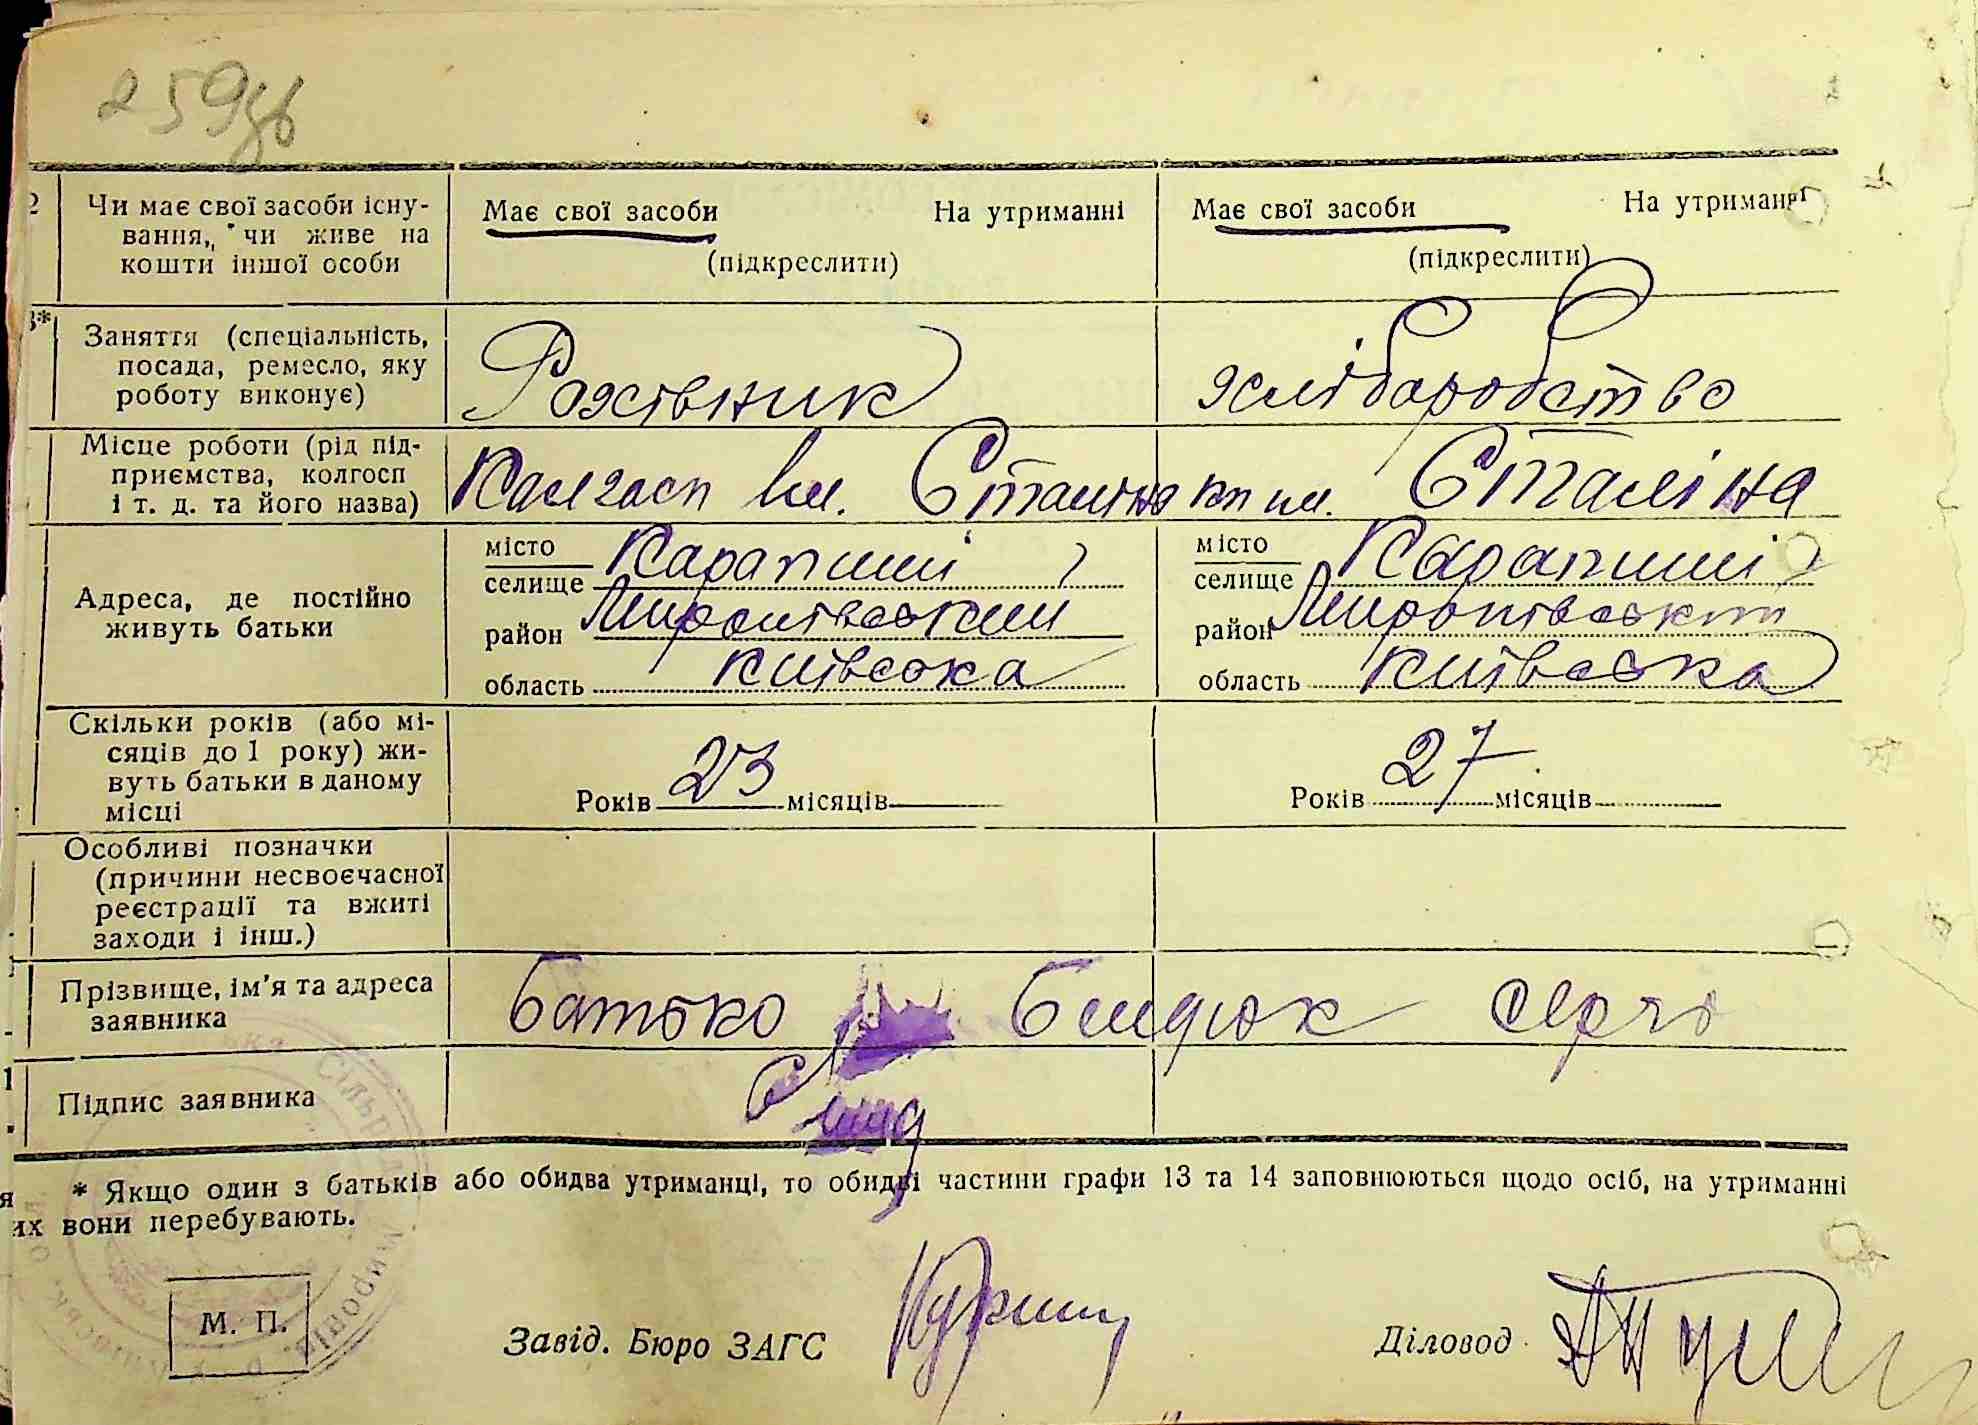 259зв
2 Чи має свої засоби існу- Має свої засоби На утриманні Має свої засоби На утриманні
вання, чи живе на
кошти іншої особи (підкреслити) (підкреслити)
3* Заняття (спеціальність,
посада, ремесло, яку
роботу виконує) хліборобство
Місце роботи (рід під-
приємства, колгосп
і т. д. та його назва) Колгосп ім. Сталіна кп им. Сталіна
місто Карапиші місто Карапиші
селище селище
Адреса, де постійно
живуть батьки район Миронівський район Миронівський
область Київська область Київська
Скільки років (або мі-
сяців до 1 року) жи-
вуть батьки в даному
місці Років 23 місяців Років 27 місяців
Особливі позначки
(причини несвоєчасної
реєстрації та вжиті
заходи і інш.)
Прізвище, ім'я та адреса
заявника Батько Бидюк Сергі
Підпис заявника
* Якщо один з батьків або обидва утриманці, то обидві частини графи 13 та 14 заповнюються щодо осіб, на утриманні
их вони перебувають.
М. П. Завід. Бюро ЗАГС Діловод